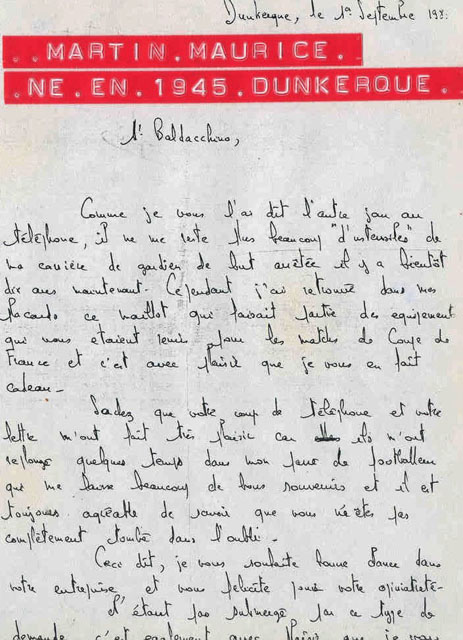 Dunkerque, le 1er Septembre 198
..MARTIN.MAURICE.
.NE.EN.1945.DUNKERQUE.
Mr Baldacchino,
Comme je vous l'ai dit l'autre jour au
téléphone, il ne me reste plus beaucoup "d'ustensiles" de
ma carrière de gardien de but arrêtée il y a bientôt
dix ans maintenant. Cependant j'ai retrouvé dans mes
placards ce maillot qui faisait partie des équipement
qui nous étaient remis pour les matchs de Coupe de
France et c'est avec plaisir que je vous en fait
cadeau -
Sachez que votre coup de téléphone et votre
lettre m'ont fait très plaisir car ils m'ont
replongé quelques temps dans mon passé de footballeur
qui me laisse beaucoup de bons souvenirs et il est
toujours agréable de savoir que vous n'êtes pas
complètement tombé dans l'oubli -
Ceci dit, je vous souhaite bonne chance dans
votre entreprise, et vous félicite pour votre opiniatreté -
étant pas submergé par ce type de
demande c'est également avec plaisir que je vous